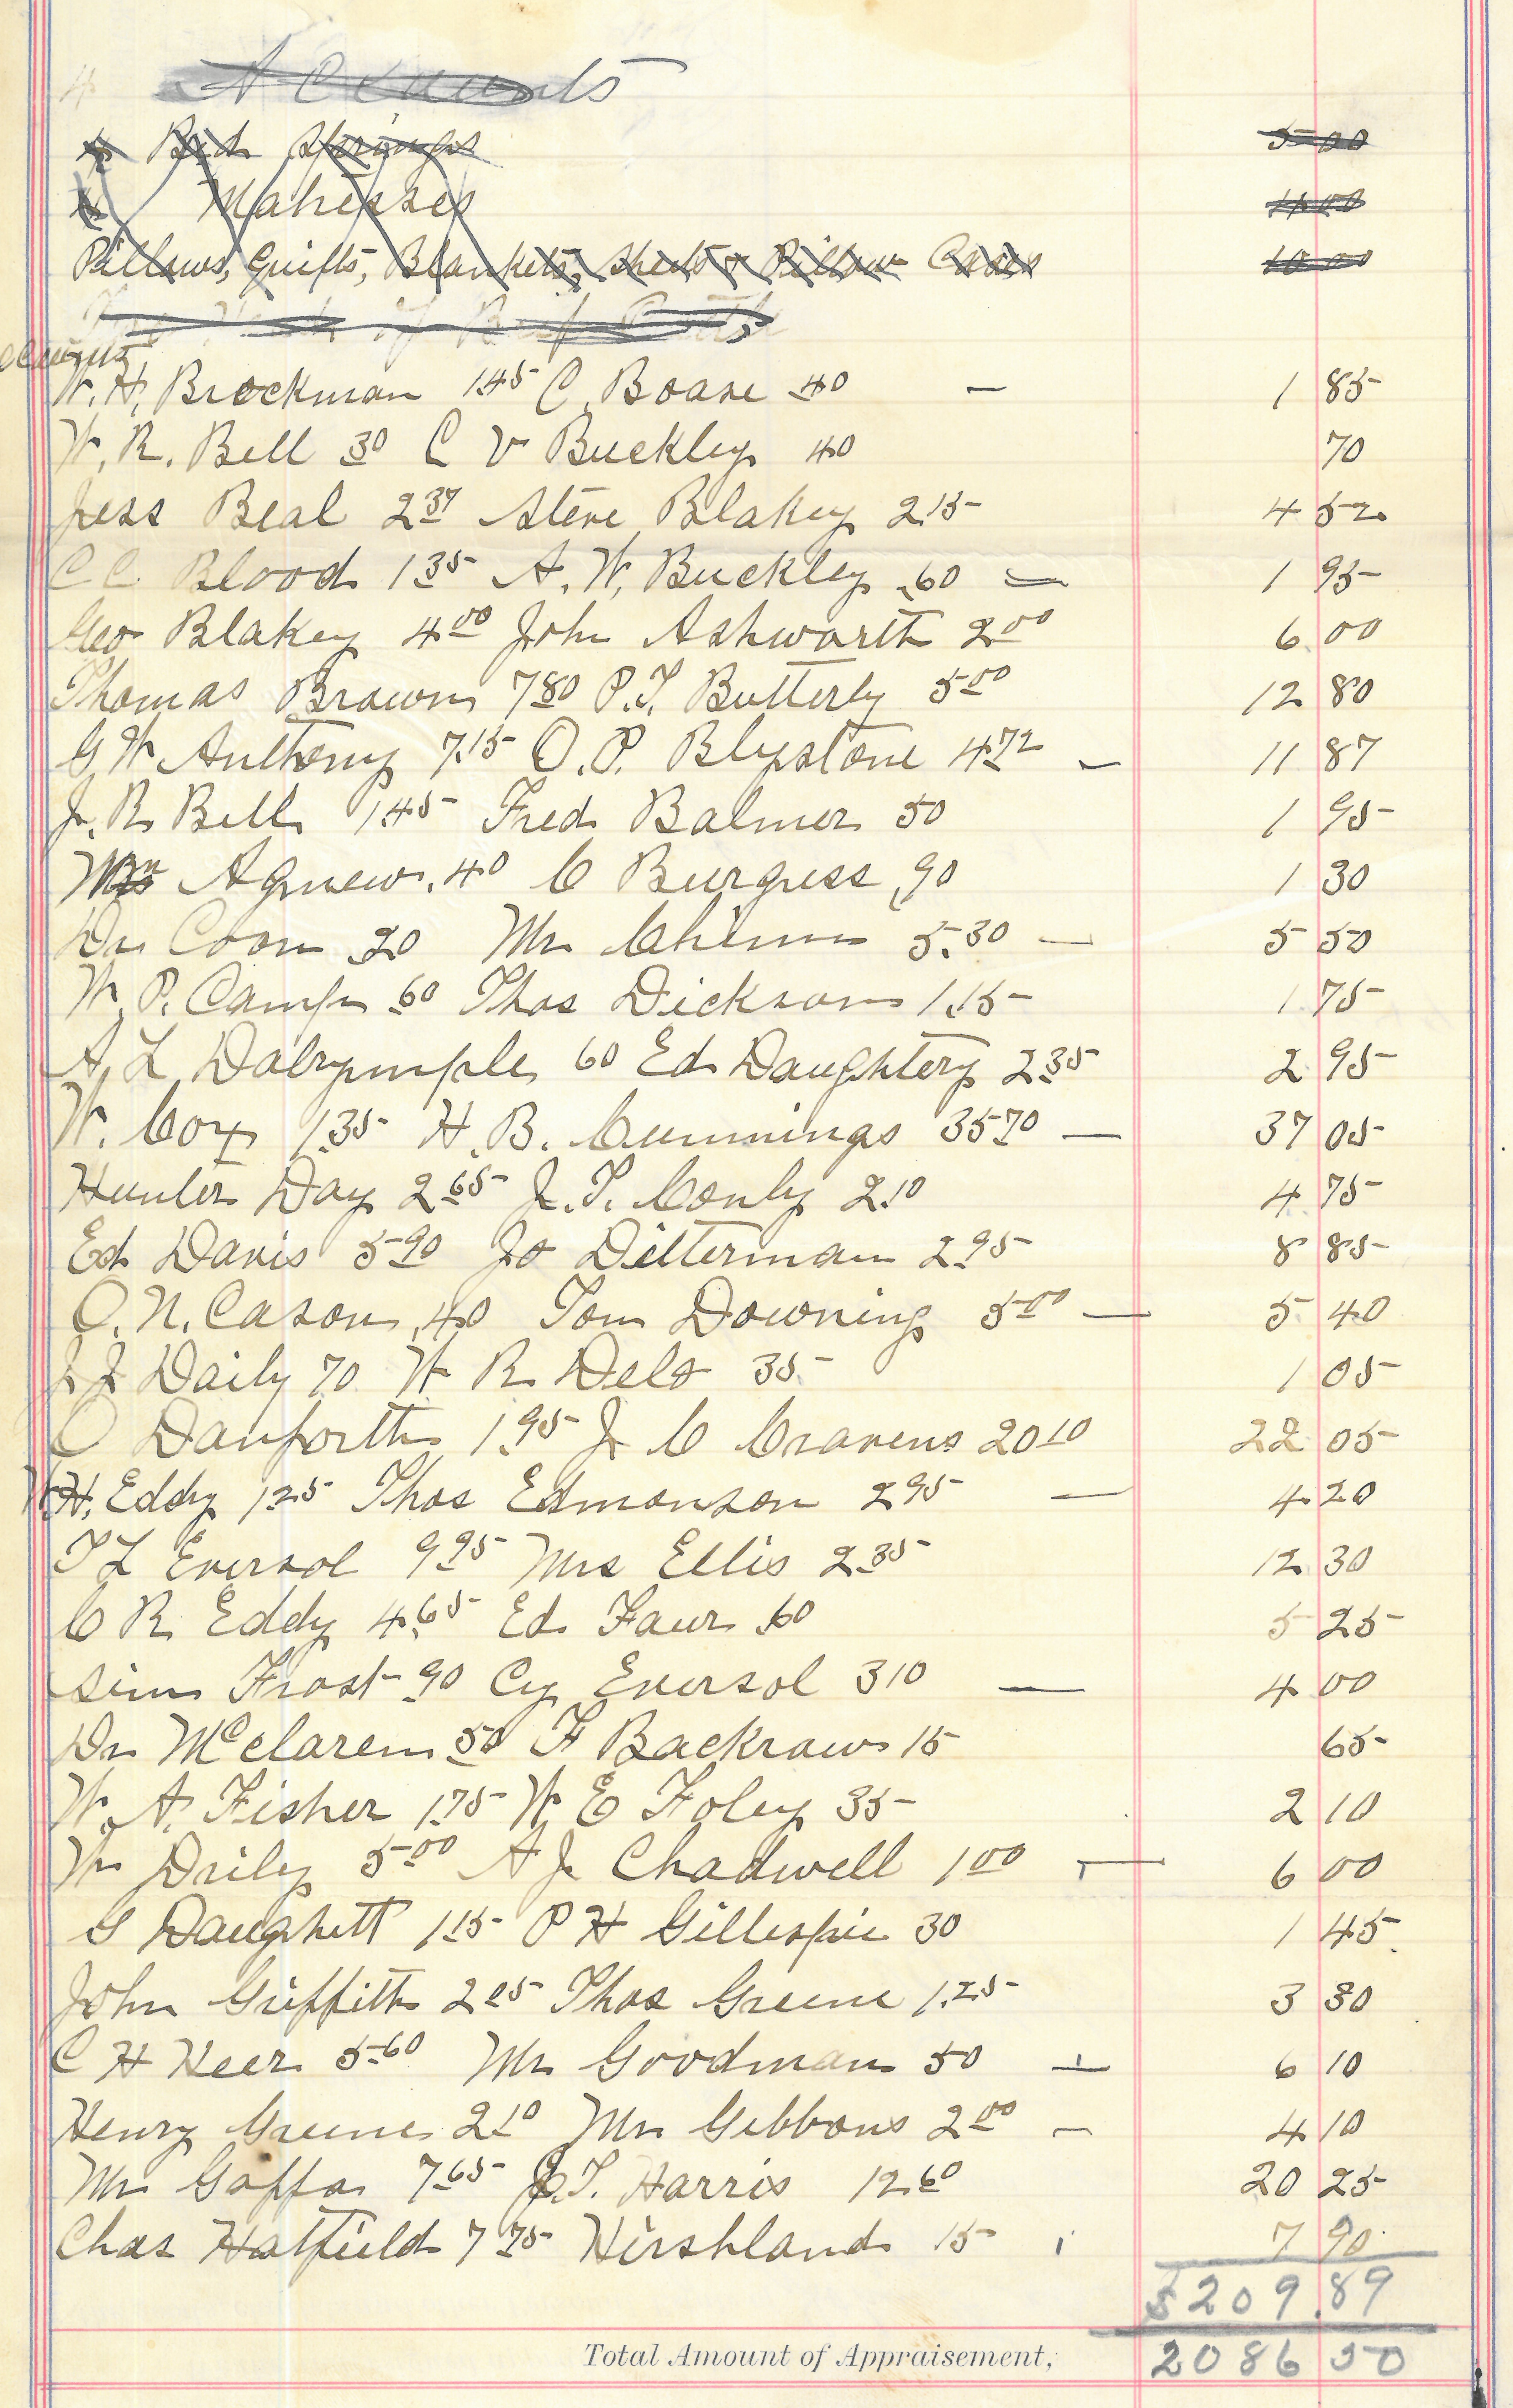 4 Accounts
4 Bed Springs 5 00
4 Matresses 4 00
Pillows, Quilts, Blankets, Sheets & Pillow Cases 10 00
of Beef Cattle
W. H. Brockman 1.45 C. Boare 40 — 1 85
W. R. Bell 30 C V Buckley 40 70
Jess Beal 2 37 Steve Blakey 2.15 4 52
C C Blood 1 35 A. W. Buckley .60 — 1 95
Geo Blakey 4 00 John Ashworth 2 00 6 00
Thomas Brown 7 80 P. T. Butterly 5 00 12 80
G W Anthony 7.15 O. P. Blystone 4 72 — 11 87
J. R. Bell 1 45 Fred Balmer 50 1 95
Mr Agnew .40 C Burgess .90 1 30
Dr Coon 20 Mr Chinn 5.30 — 5 50
W. P. Camp 60 Thos Dickson 1.15 1 75
A. L Dalrymple 60 Ed Daughtery 2 35 2 95
W. Cox 1.35 H. B. Cummings 35 70 — 37 05
Hunter Day 2 65 J. T. Conly 2.10 4 75
Ed Davis 5 90 Jo Ditterman 2 95 8 85
O. N. Cason .40 Tom Downing 5 00 — 5 40
J J Daily 70 W R Delo 35 1 05
O Danforth 1.95 J C Cravens 20 10 22 05
W H. Eddy 1 25 Thos Edmonson 2 95 — 4 20
T L Eversol 9 95 Mrs Ellis 2 35 12 30
C R Eddy 4.65 Ed Faur .60 5 25
Sim Frost 90 Cy Eversol 3 10 — 4 00
Dr McClaren 50 F Backraw 15 65
W. A. Fisher 1.75 W E Foley 35 2 10
Wm Drily 5 00 A J Chadwell 1 00 — 6 00
G Daughett 1 15 P H Gillespie 30 1 45
John Griffith 2 05 Thos Greene 1.25 3 30
C H Heer 5 60 Mr Goodman 50 — 6 10
Henry Greene 2 10 Mr Gibbons 2 00 — 4 10
Mr Gaffa 7 65 J. T. Harris 12 60 20 25
Chas Hatfield 7 75 Hirshland 15 7 90
$209.89
Total Amount of Appraisement, 2086 50